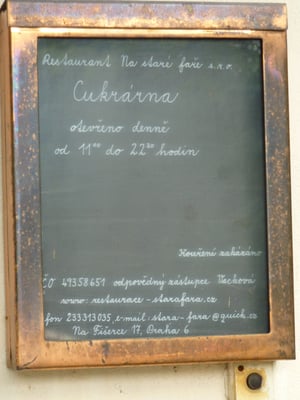 Restaurant Na staré faře s.r.o.
Cukrárna
otevřeno denně
od 11⁰⁰ do 22³⁰ hodin
Kouření zakázáno
IČO 47358651 odpovědný zástupce Vacková
www: restaurace-starafara.cz
fon 233313035, e-mail: stara-fara@quick.cz
Na Fišerce 17, Praha 6